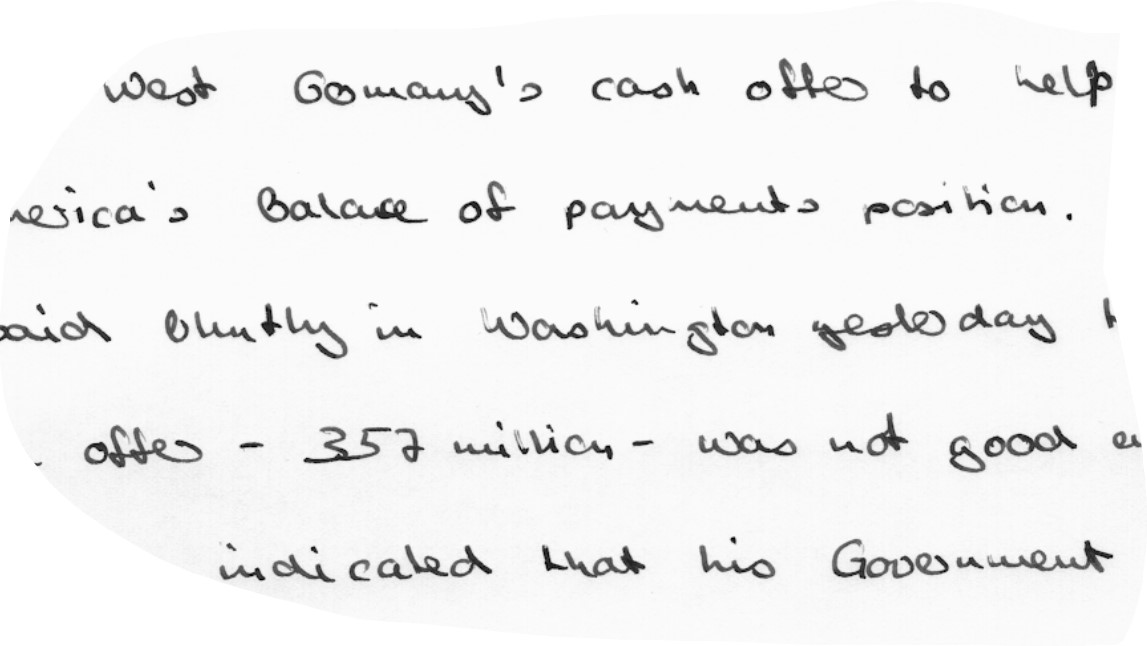 West Germany's cash offer to help
merica's Balance of payments position.
said bluntly in Washington yesterday
offer - 357 million - was not good
indicated that his Government